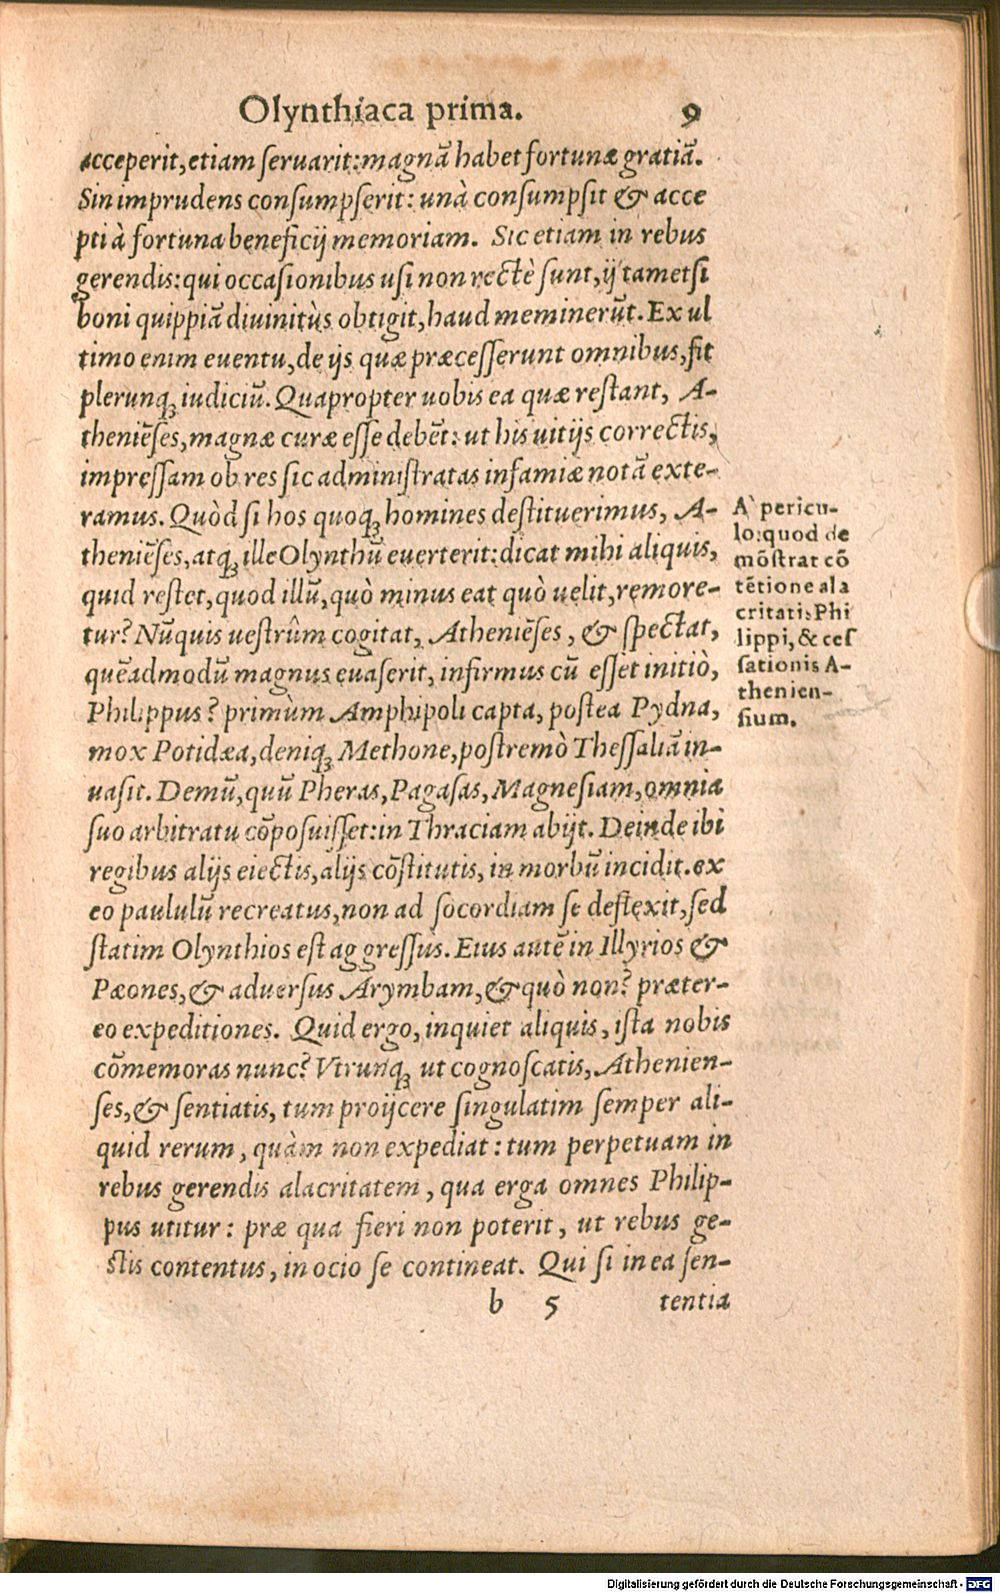 Olynthiaca prima. 9
acceperit, etiam seruarit: magnā habet fortunæ gratiā.
Sin imprudens consumpserit: unà consumpsit & acce
pti à fortuna beneficij memoriam. Sic etiam in rebus
gerendis: qui occasionibus usi non rectè sunt, ij tametsi
boni quippiā diuinitùs obtigit, haud meminerūt. Ex ul
timo enim euentu, de ijs quæ præcesserunt omnibus, fit
plerunqꝫ iudiciū. Quapropter uobis ea quæ restant, A-
theniēses, magnæ curæ esse debēt: ut his uitijs correctis,
impressam ob res sic administratas infamiæ notā exte-
ramus. Quòd si hos quoqꝫ homines destituerimus, A-
theniēses, atqꝫ ille Olynthū euerterit: dicat mihi aliquis,
quid restet, quod illū, quò minus eat quò uelit, remore-
tur? Nūquis uestrûm cogitat, Atheniēses, & spectat,
quēadmodū magnus euaserit, infirmus cū esset initiò,
Philippus? primùm Amphipoli capta, postea Pydna,
mox Potidæa, deniqꝫ Methone, postremò Thessaliā in-
uasit. Demū, quū Pheras, Pagasas, Magnesiam, omnia
suo arbitratu cōposuisset: in Thraciam abijt. Deinde ibi
regibus alijs eiectis, alijs cōstitutis, in morbū incidit. ex
eo paululū recreatus, non ad socordiam se deflexit, sed
statim Olynthios est aggressus. Eius autē in Illyrios &
Pæones, & aduersus Arymbam, & quò non? præter-
eo expeditiones. Quid ergo, inquiet aliquis, ista nobis
cōmemoras nunc? Vtrunqꝫ ut cognoscatis, Athenien-
ses, & sentiatis, tum proijcere singulatim semper ali-
quid rerum, quàm non expediat: tum perpetuam in
rebus gerendis alacritatem, qua erga omnes Philip-
pus utitur: præ qua fieri non poterit, ut rebus ge-
stis contentus, in ocio se contineat. Qui si in ea sen-
b 5 tentia
A' pericu-
lo: quod de
mōstrat cō
tētione ala
critatis Phi
lippi, & ces
sationis A-
thenien-
sium.
Digitalisierung gefördert durch die Deutsche Forschungsgemeinschaft - DFG